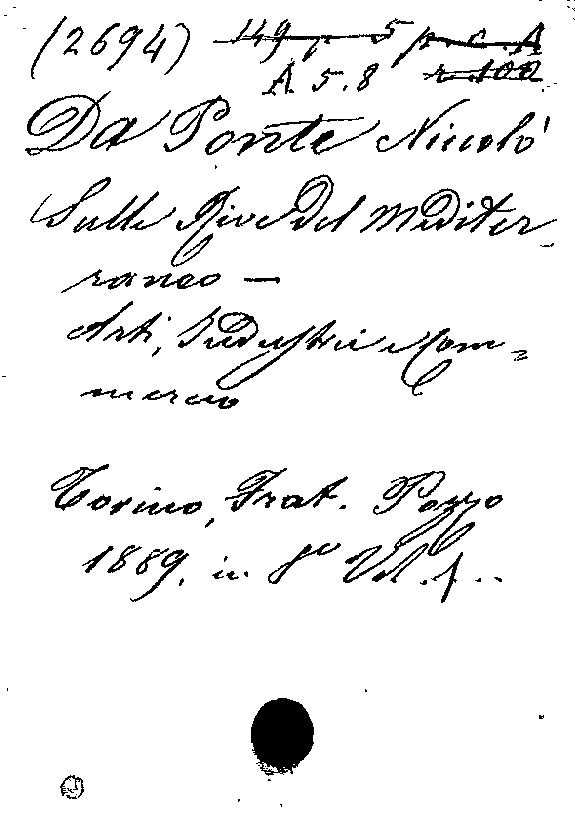 (2694) 149 p 5 p. c. A
A 5.8 r. 100
Da Ponte Niccolò
Sulle Rive Del Mediter-
raneo —
Arti, Industrie e Com-
mercio
Torino, Frat. Pozzo
1889, in 8° Vol. 1..